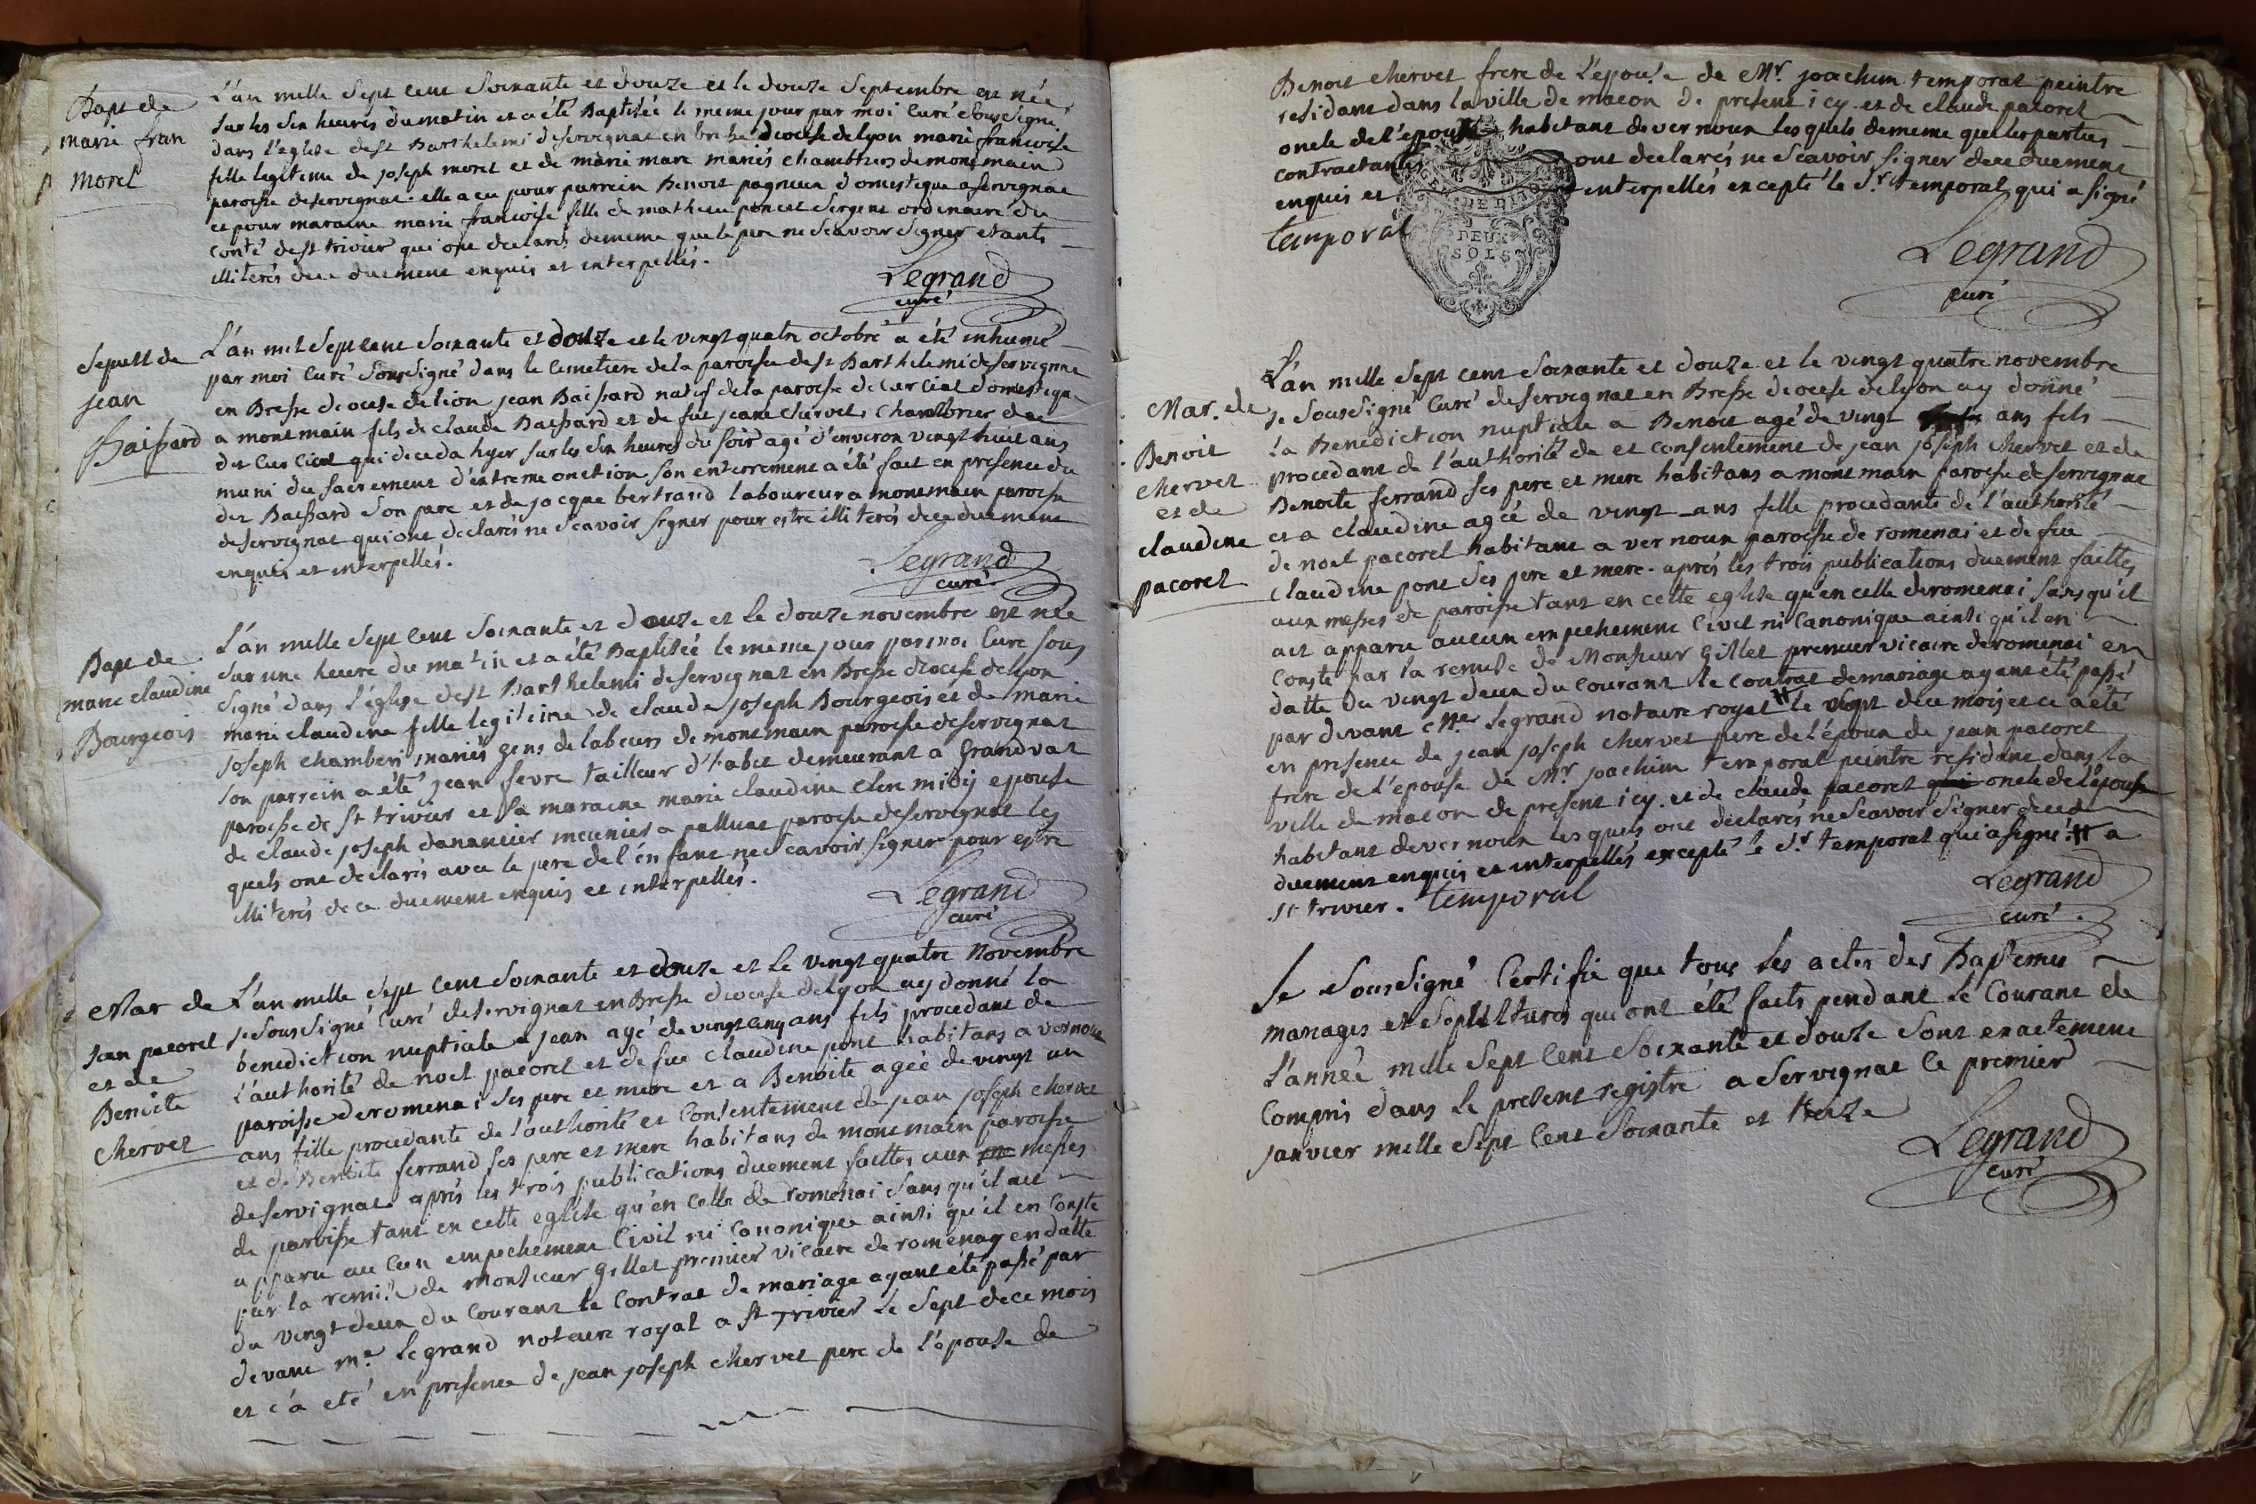 Bapt de
marie fran
morel
L'an mille sept cent soixante et douze et le douze septembre est née
sur les six heures du matin et a été Baptisée le meme jour par moi Curé soussigné
dans l'eglise de st Barthelemi de servignat en bresse diocese de lyon marie francoise
fille legitime de joseph morel et de marie mare mariés chambriers de montmain
paroisse de servignat. elle a eu pour parrein Benoit pagneux domestique a servignat
et pour maraine marie francoise fille de mathieu poncet sergent ordinaire du
Conté de st trivier qui ont declarés dememe que le pere ne scavoir signer etants
illiterés de ce duement enquis et interpellés.
Legrand
curé
sepult de
jean
Baissard
L'an mil sept cent soixante et douze et le vingt quatre octobre a été inhumé
par moi Curé soussigné dans le Cimetiere de la paroisse de st Barthelemi de servignat
en Bresse diocese de lion jean Baissard natif de la paroisse de Curciat domestique
a montmain fils de claude Baissard et de fue jeane chervet, chambrier de
dit Curciat qui deceda hyer sur les six heures du soir agé d'environ vingt huit ans
muni du sacrement d'extreme onction son enterrement a été fait en presence du
dit Baissard son pere et de jacque bertrand laboureur a montmain paroisse
de servignat qui ont declarés ne scavoir signer pour estre illiterés de ce duement
enquis et interpellés.
Legrand
curé
Bapt de
marie claudine
Bourgeois
L'an mille sept cent soixante et douze et le douze novembre est née
sur une heure du matin et a été Baptisée le meme jour par moi Curé sous
signé dans l'église de st Barthelemi de servignat en Bresse diocese de lyon
marie claudine fille legitime de claude joseph Bourgeois et de marie
joseph chamberi mariés gens de labeurs de montmain paroisse de servignat
son parrein a été jean fevre tailleur d'habit demeurant a Grandval
paroisse de st trivier et sa maraine marie claudine epouse
de claude joseph danancier meunier a palluat paroisse de servignat les
quels ont declarés avec le pere de l'enfant ne scavoir signer pour estre
illiterés de ce duement enquis et interpellés.
Legrand
curé
Mar de
jean pacoret
et de
Benoite
chervet
L'an mille sept cent soixante et douze et le vingt quatre Novembre
je soussigné Curé de servignat en Bresse diocese de lyon ay donné la
benediction nuptiale a jean agé de vingt cinq ans fils procedant de
l'authorité de noel pacoret et de fue claudine pont habitans a vernoux
paroisse de romenai ses pere et mere et a Benoite agée de vingt un
ans fille procedante de l'authorité et Consentement de jean joseph chervet
et de Benoite ferrand ses pere et mere habitans de montmain paroisse
de servignat après les trois publications duement faittes aux messes
de paroisse tant en cette eglise qu'en celle de romenai sans qu'il ait
apparu aucun empechement Civil ni Canonique ainsi qu'il en Conste
par la remise de monsieur gillet premier vicaire de romenay en datte
du vingt deux du Courant le Contrat de mariage ayant été passé par
devant me. Legrand notaire royal a st Trivier le sept de ce mois
et c'a eté en presence de jean joseph chervet pere de l'epouse de
Benoit chervet frere de l'epouse de Mr. joachim temporal peintre
residant dans la ville de macon de present icy. et de claude pacoret
oncle de l'epoux habitant de vernoux les quels dememe que les parties
contractantes ont declarés ne scavoir signer de ce duement
enquis et interpellés excepté le Sr. temporal qui a signé
GEN. DE DIJON
DEUX
SOLS
temporal
Legrand
curé
Mar. de
Benoit
chervet
et de
claudine
pacoret
L'an mille sept cent soixante et douze et le vingt quatre novembre
je soussigné Curé de servignat en Bresse diocese de lyon ay donné
la Benediction nuptiale a Benoit agé de vingt ans fils
procedant de l'authorité de et consentement de jean joseph chervet et de
Benoite ferrand ses pere et mere habitans a montmain paroisse de servignat
et a claudine agée de vingt ans fille procedante de l'authorité
de noel pacoret habitant a vernoux paroisse de romenai et de fue
claudine pont ses pere et mere. après les trois publications duement faittes
aux messes de paroisse tant en cette eglise qu'en celle de romenai sans qu'il
ait apparu aucun empechement Civil ni Canonique ainsi qu'il en
Conste par la remise de Monsieur Gillet premier vicaire de romenai en
datte du vingt deux du Courant le contrat de mariage ayant été passé
par devant Me. Legrand notaire royal # le sept du mois et ce a été
en presence de jean joseph chervet pere de l'epoux de jean pacoret
frere de l'epouse de Mr joachim temporal peintre residant dans la
ville de macon de present icy. et de claude pacoret qui oncle de l'epouse
habitant de vernoux les quels ont declarés ne scavoir signer de ce
duement enquis et interpellés excepté le Sr. temporal qui a signé. # a
st trivier. temporal
Legrand
curé.
Je soussigné Certifie que tous les actes des Baptemes
mariages et sepultures qui ont été faits pendant le Courant de
l'année mille sept cent soixante et douze sont exactement
compris dans le present registre a servignat ce premier
janvier mille sept cent soixante et treize
Legrand
curé